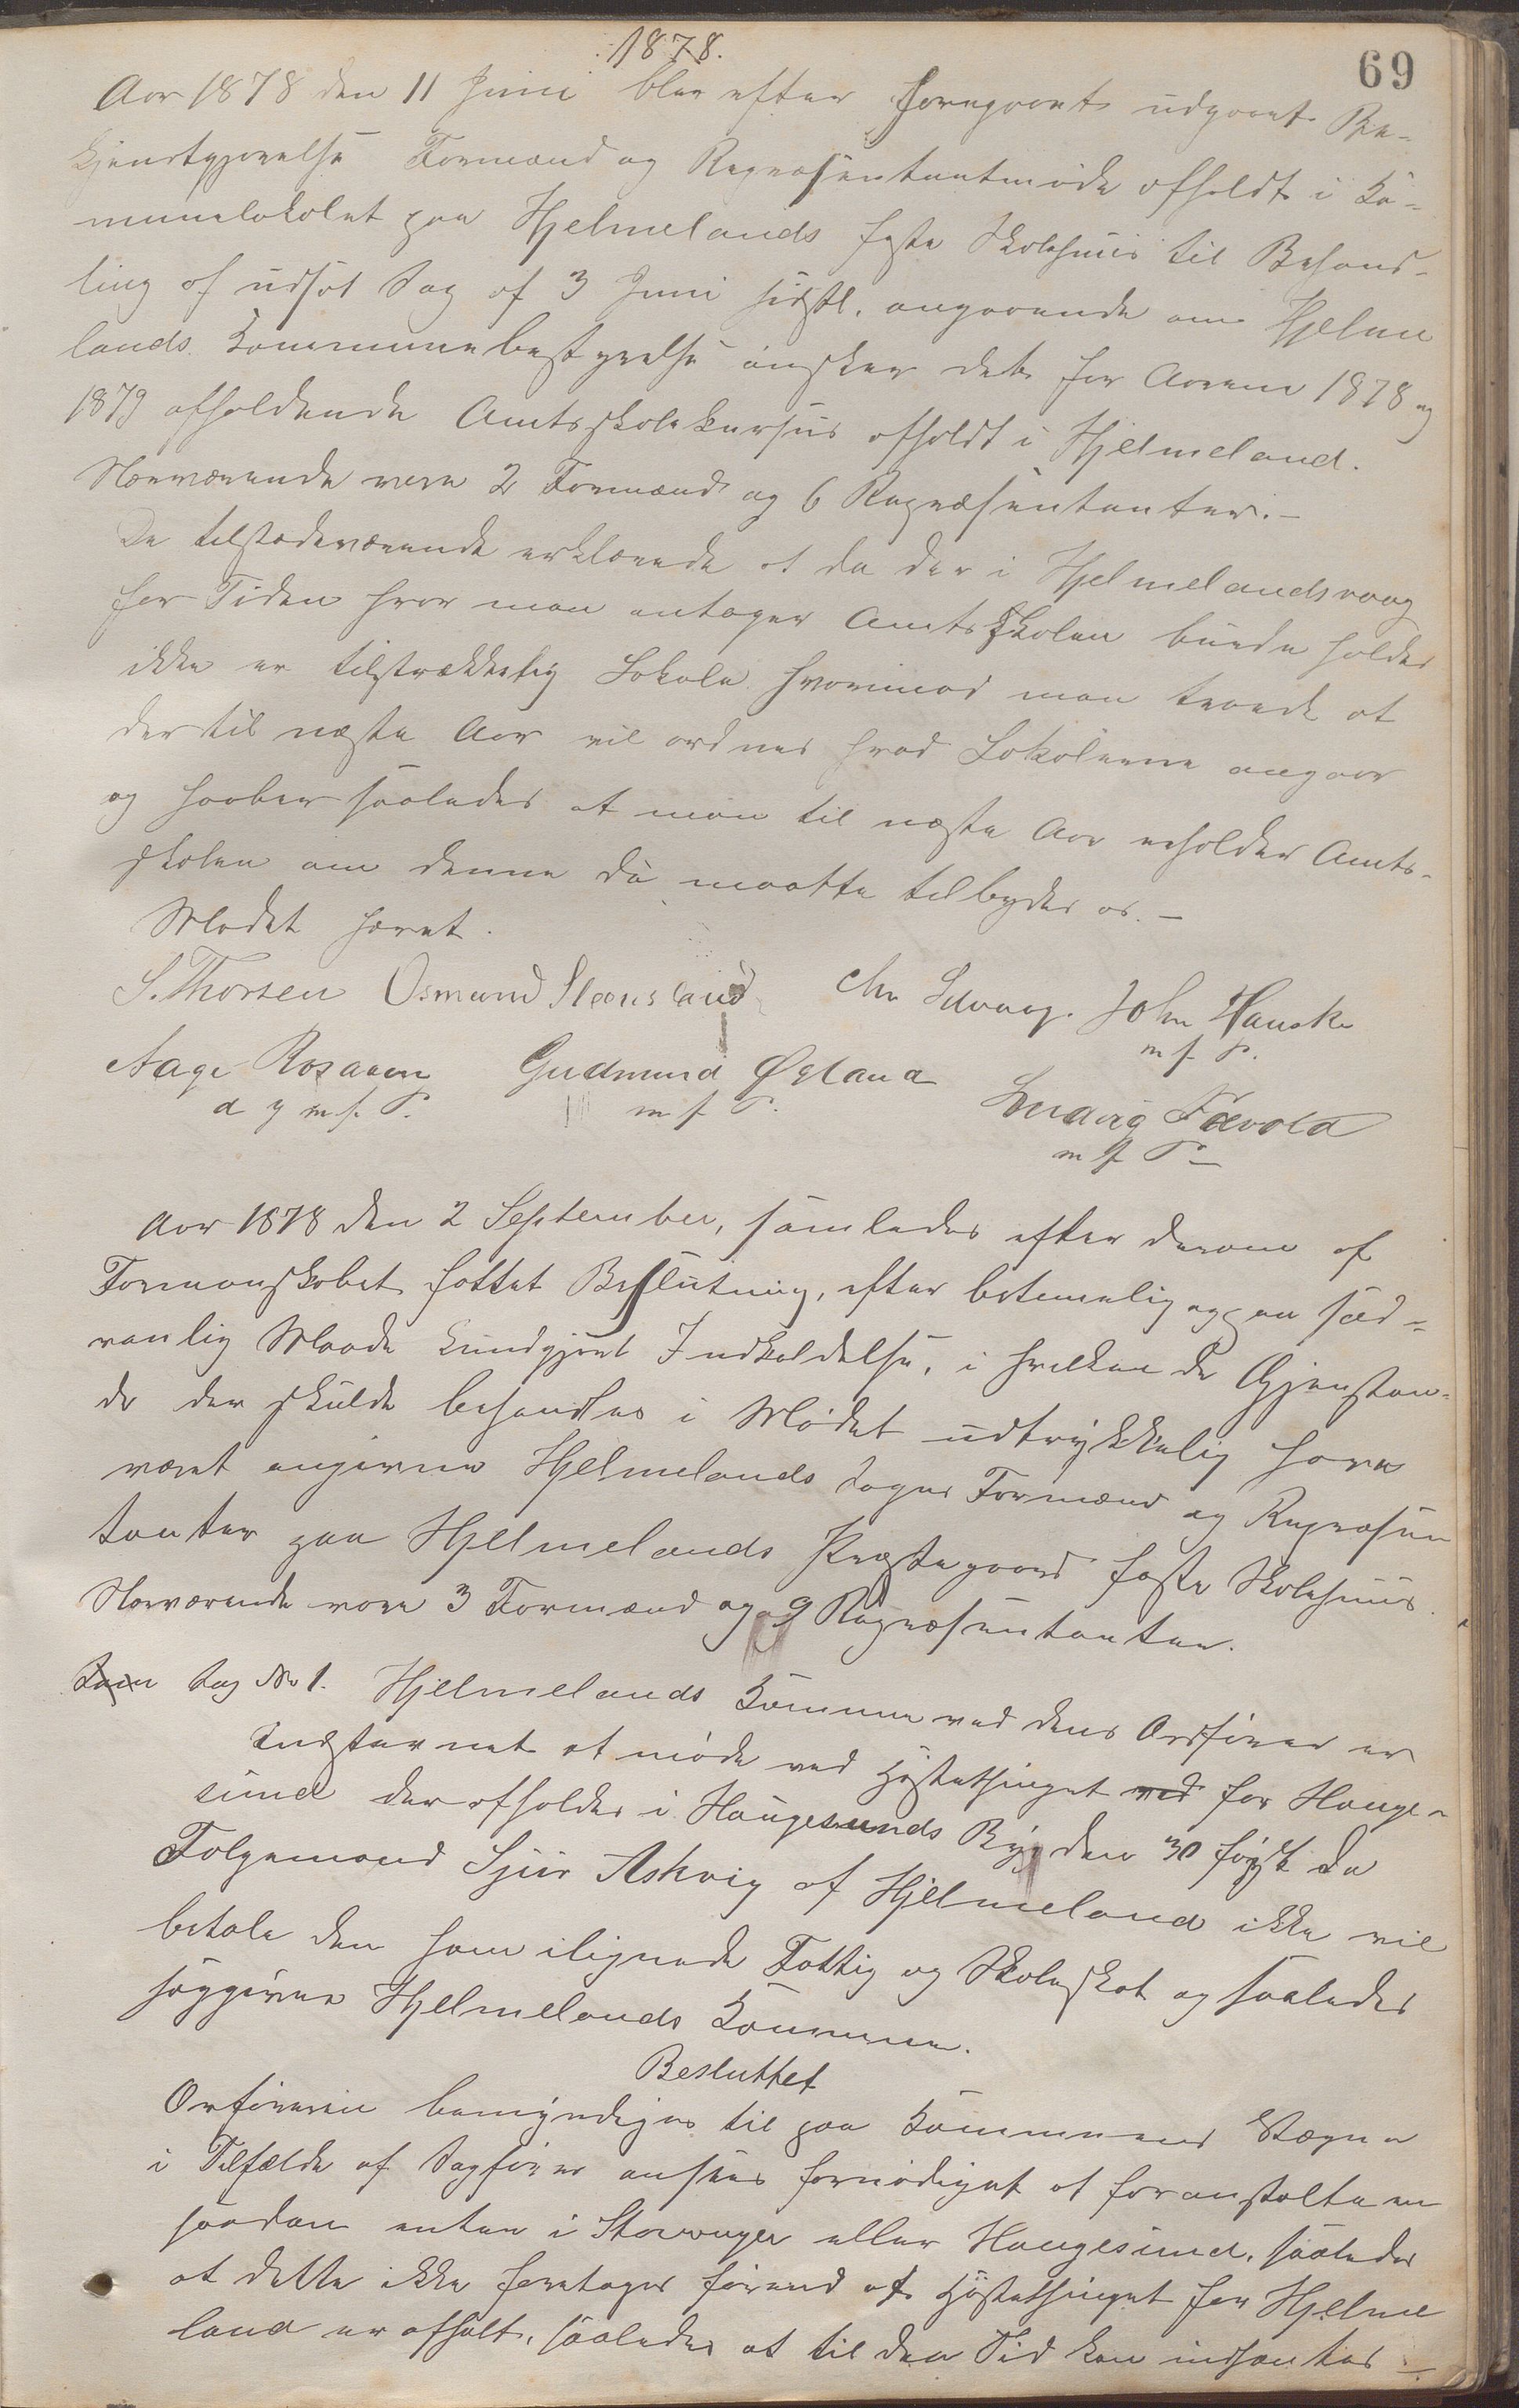 1878.
69
Aar 1878 den 11 Juni blev efter foregaaet udgaaet Be-
kjendtgjørelse Formænd og Repræsentantmøde afholdt i Ko-
munelokalet paa Hjelmelands faste Skolehuus til Behand-
ling af udsat Sag af 3 Juni sidstl. angaaende om Hjelme
lands Kommunebestyrelse ønsker det for Aarene 1878 og
1879 afholdende Amtsskolekursus afholdt i Hjelmeland.
Nærværende vare 2 Formænd og 6 Repræsentanter. –
De tilstedeværende erklærede at da der i Hjelmelandsvaag
for Tiden hvor man antager Amtsskolen burde holdes
ikke er tilstrækkelig Lokale hvorimod man troede at
der til næste Aar vil ordnes hvad Lokalerne angaar
og haaber saaledes at man til næste Aar erholder Amts-
skolen om denne da maatte tilbydes os. –
Mødet hævet.
S. Thorsen Osmund Steensland Chr Sdvaag. John Hauske
m f P.
Aage Rosaaen Gudmund Øyland
d y m. f. P. m f P.
Ludvig Fævold
m f P –
Aar 1878 den 2 September, samledes efter derom af
Formanskabet fattet Beslutning, efter betimelig og paa sæd-
vanlig Maade kundgjort Indkaldelse, i hvilken de Gjenstan-
de der skulde behandles i Mødet udtrykkelig have
været angivne Hjelmelands Sogns Formænd og Repræsen
tanter paa Hjelmelands Præstegaards faste Skolehuus.
Nærværende vare 3 Formænd og 9 Repræsentanter.
Sag No 1. Hjelmelands Kommune ved dens Ordfører er
Indstævnet at møde ved Høstethinget ved for Hauge-
sund der afholdes i Haugesunds By den 30 først da
Folgemand Sjur Askvig af Hjelmeland ikke vil
betale den ham ilignede Fattig og Skoleskat og saaledes
søggiver Hjelmelands Kommune.
Besluttet
Orføreren bemyndiges til paa Kommunens Vægne
i Tilfælde af Sagfører ansees fornødiget at foranstalte en
saadan enten i Stavanger eller Haugesund, saaledes
at dette ikke foretages førend at Høstethinget for Hjelme
land er afholt, saaledes at til den Tid kan indhentes –